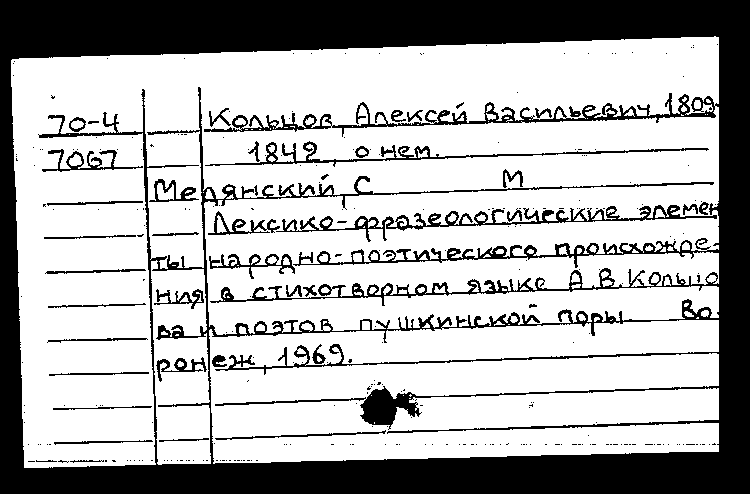 70-4 Кольцов, Алексей Васильевич, 1809-
7067 1842, о нем.
Медянский, С М
Лексико-фразеологические элемен
ты народно-поэтического происхожде-
ния в стихотворном языке А.В. Кольцо
ва и поэтов пушкинской поры. Во-
ронеж, 1969.